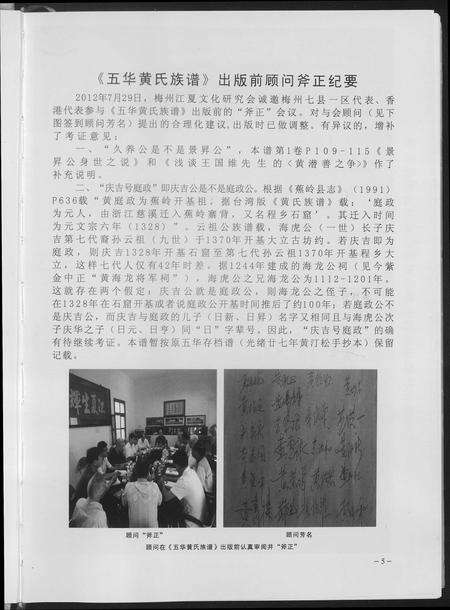 《五华黄氏族谱》出版前顾问斧正纪要
2012年7月29日，梅州江夏文化研究会诚邀梅州七县一区代表、香
港代表参与《五华黄氏族谱》出版前的“斧正”会议。对与会顾问（见下
图签到顾问芳名）提出的合理化建议，出版时已做调整。有异议的，增补
了考证意见：
一、“久养公是不是景昇公”，本谱第1卷P109-115《景
昇公身世之说》和《浅谈王国维先生的〈黄潜善之争〉》作了
补充说明。
二、“庆吉号庭政”即庆吉公是不是庭政公。根据《蕉岭县志》（1991）
P636载“黄庭政为蕉岭开基祖。据台湾版《黄氏族谱》载：‘庭政
为元人，由浙江慈溪迁入蕉岭寨背，又名程乡石窟’。其迁入时间
为元文宗六年（1328）”。云祖公族谱载，海虎公（一世）长子庆
吉第七代裔孙云祖（九世）于1370年开基大立古坊约。若庆吉即为
庭政，则庆吉1328年开基石窟至第七代孙云祖1370年开基程乡大
立，这样七代人仅有42年时差。据1244年建成的海龙公祠（见今紫
金中正“黄海龙将军祠”），海虎公之兄海龙公为1112-1201年，
这就存两个假定：庆吉公就是庭政公，则海龙公之侄子，不可能
在1328年在石窟开基或者说庭政公开基时间推后了约100年；若庭政公不
是庆吉公，而庆吉与庭政的儿子（日新、日昇）名字又相同且与海虎公次
子庆华之子（日元、日亨）同“日”字辈号。因此，“庆吉号庭政”的确
有待继续考证。本谱暂按原五华存档谱（光绪廿七年黄汀松手抄本）保留
记载。
顾问“斧正”
顾问芳名
顾问在《五华黄氏族谱》出版前认真审阅并“斧正”
-5-